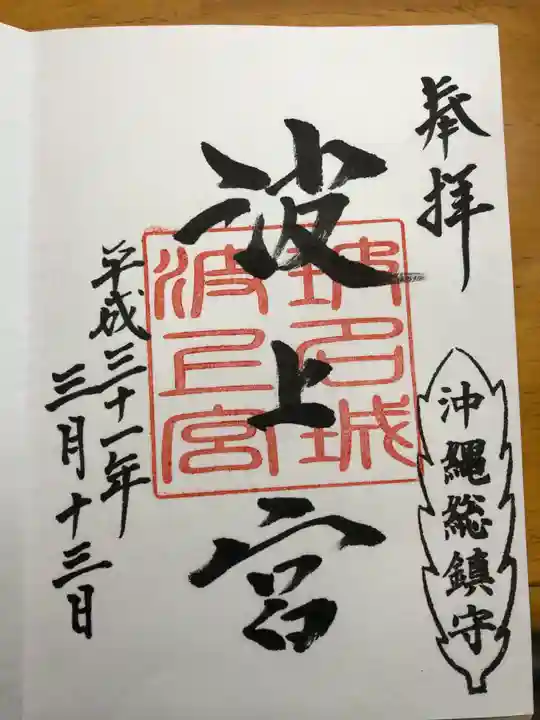 奉拝
沖縄総鎮守
波上宮
波上宮
平成三十一年
三月十三日